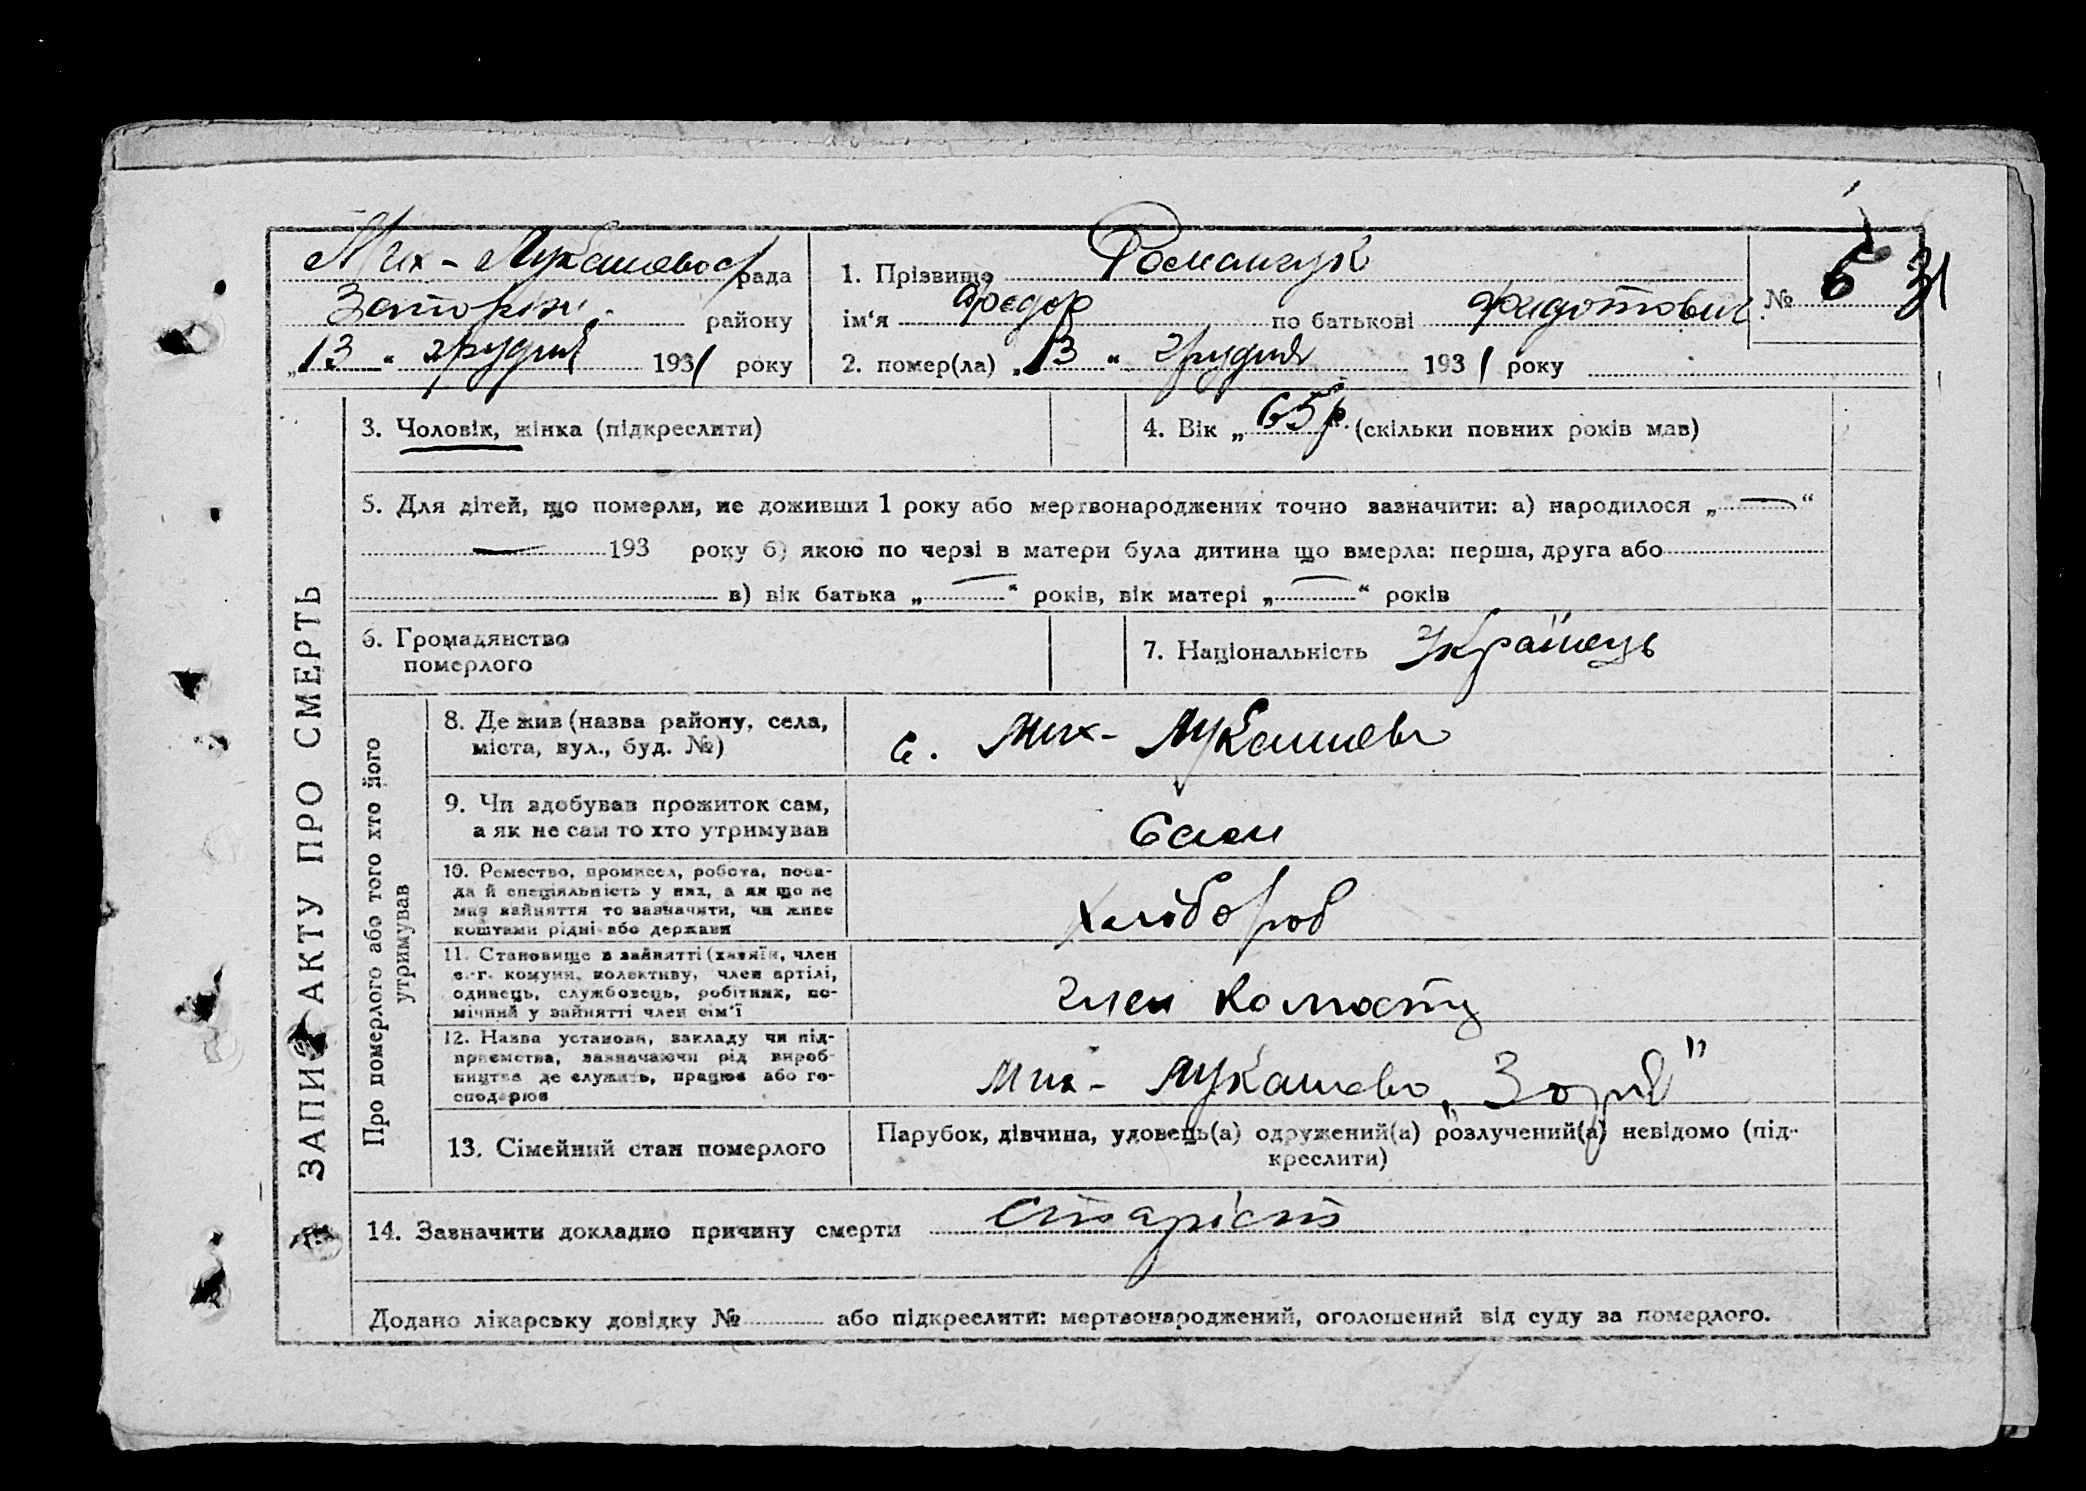 Мих-Лукашевос рада
Запоріж. району
„13“ грудня 1931 року
1. Прізвище Романчук
ім‘я Федор по батькові Федотович
2. помер(ла) „13“ грудня 1931 року
№ 6 31
ЗАПИС АКТУ ПРО СМЕРТЬ
3. Чоловік, жінка (підкреслити)
4. Вік „65 р. (скільки повних років мав)
5. Для дітей, що померли, не доживши 1 року або мертвонароджених точно зазначити: а) народилося „—“
— 193 року б) якою по черзі в матери була дитина що вмерла: перша, друга або
в) вік батька „—“ років, вік матері „—“ років
6. Громадянство
померлого
7. Національність Українець
Про померлого або того хто його
утримував
8. Де жив (назва району, села,
міста, вул., буд. №)
с. Мих- Лукашево
9. Чи здобував прожиток сам,
а як не сам то хто утримував
Сам
10. Ремество, промисел, робота, поса-
да й спеціяльність у них, а як що не
мав зайняття то зазначити, чи живе
коштами рідні або держави
хлібороб
11. Становище в зайнятті (хазяїн, член
с.-г. комуни, колективу, член артілі,
одинець, службовець, робітник, по-
мічний у зайнятті член сім‘ї
член колгоспу
12. Назва установи, закладу чи під-
приємства, зазначаючи рід вироб-
ництва де служить, працює або го-
сподарює
Мих- Лукашево „Зоря"
13. Сімейний стан померлого
Парубок, дівчина, удовець(а) одружений(а) розлучений(а) невідомо (під-
креслити)
14. Зазначити докладно причину смерти старість
Додано лікарську довідку № або підкреслити: мертвонароджений, оголошений від суду за померлого.